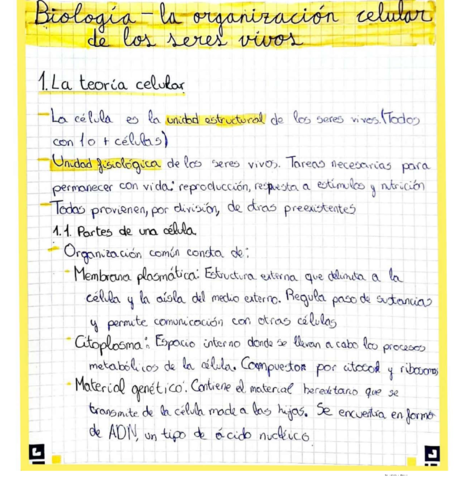 Biología - la organización celular
de los seres vivos
1. La teoría celular
- La célula es la unidad estructural de los seres vivos. (Todos
con 1 o + células)
- Unidad fisiológica de los seres vivos. Tareas necesarias para
permanecer con vida: reproducción, respuesta a estímulos y nutrición
- Todas provienen, por división, de otras preexistentes
1.1. Partes de una célula
- Organización común consta de:
- Membrana plasmática: Estructura externa que delimita a la
célula y la aísla del medio externo. Regula paso de sustancias
y permite comunicación con otras células
- Citoplasma: Espacio interno donde se llevan a cabo los procesos
metabólicos de la célula. Compuestos por citosol y ribosomas
- Material genético: Contiene el material hereditario que se
transmite de la célula madre a las hijas. Se encuentra en forma
de ADN, un tipo de ácido nucleico.